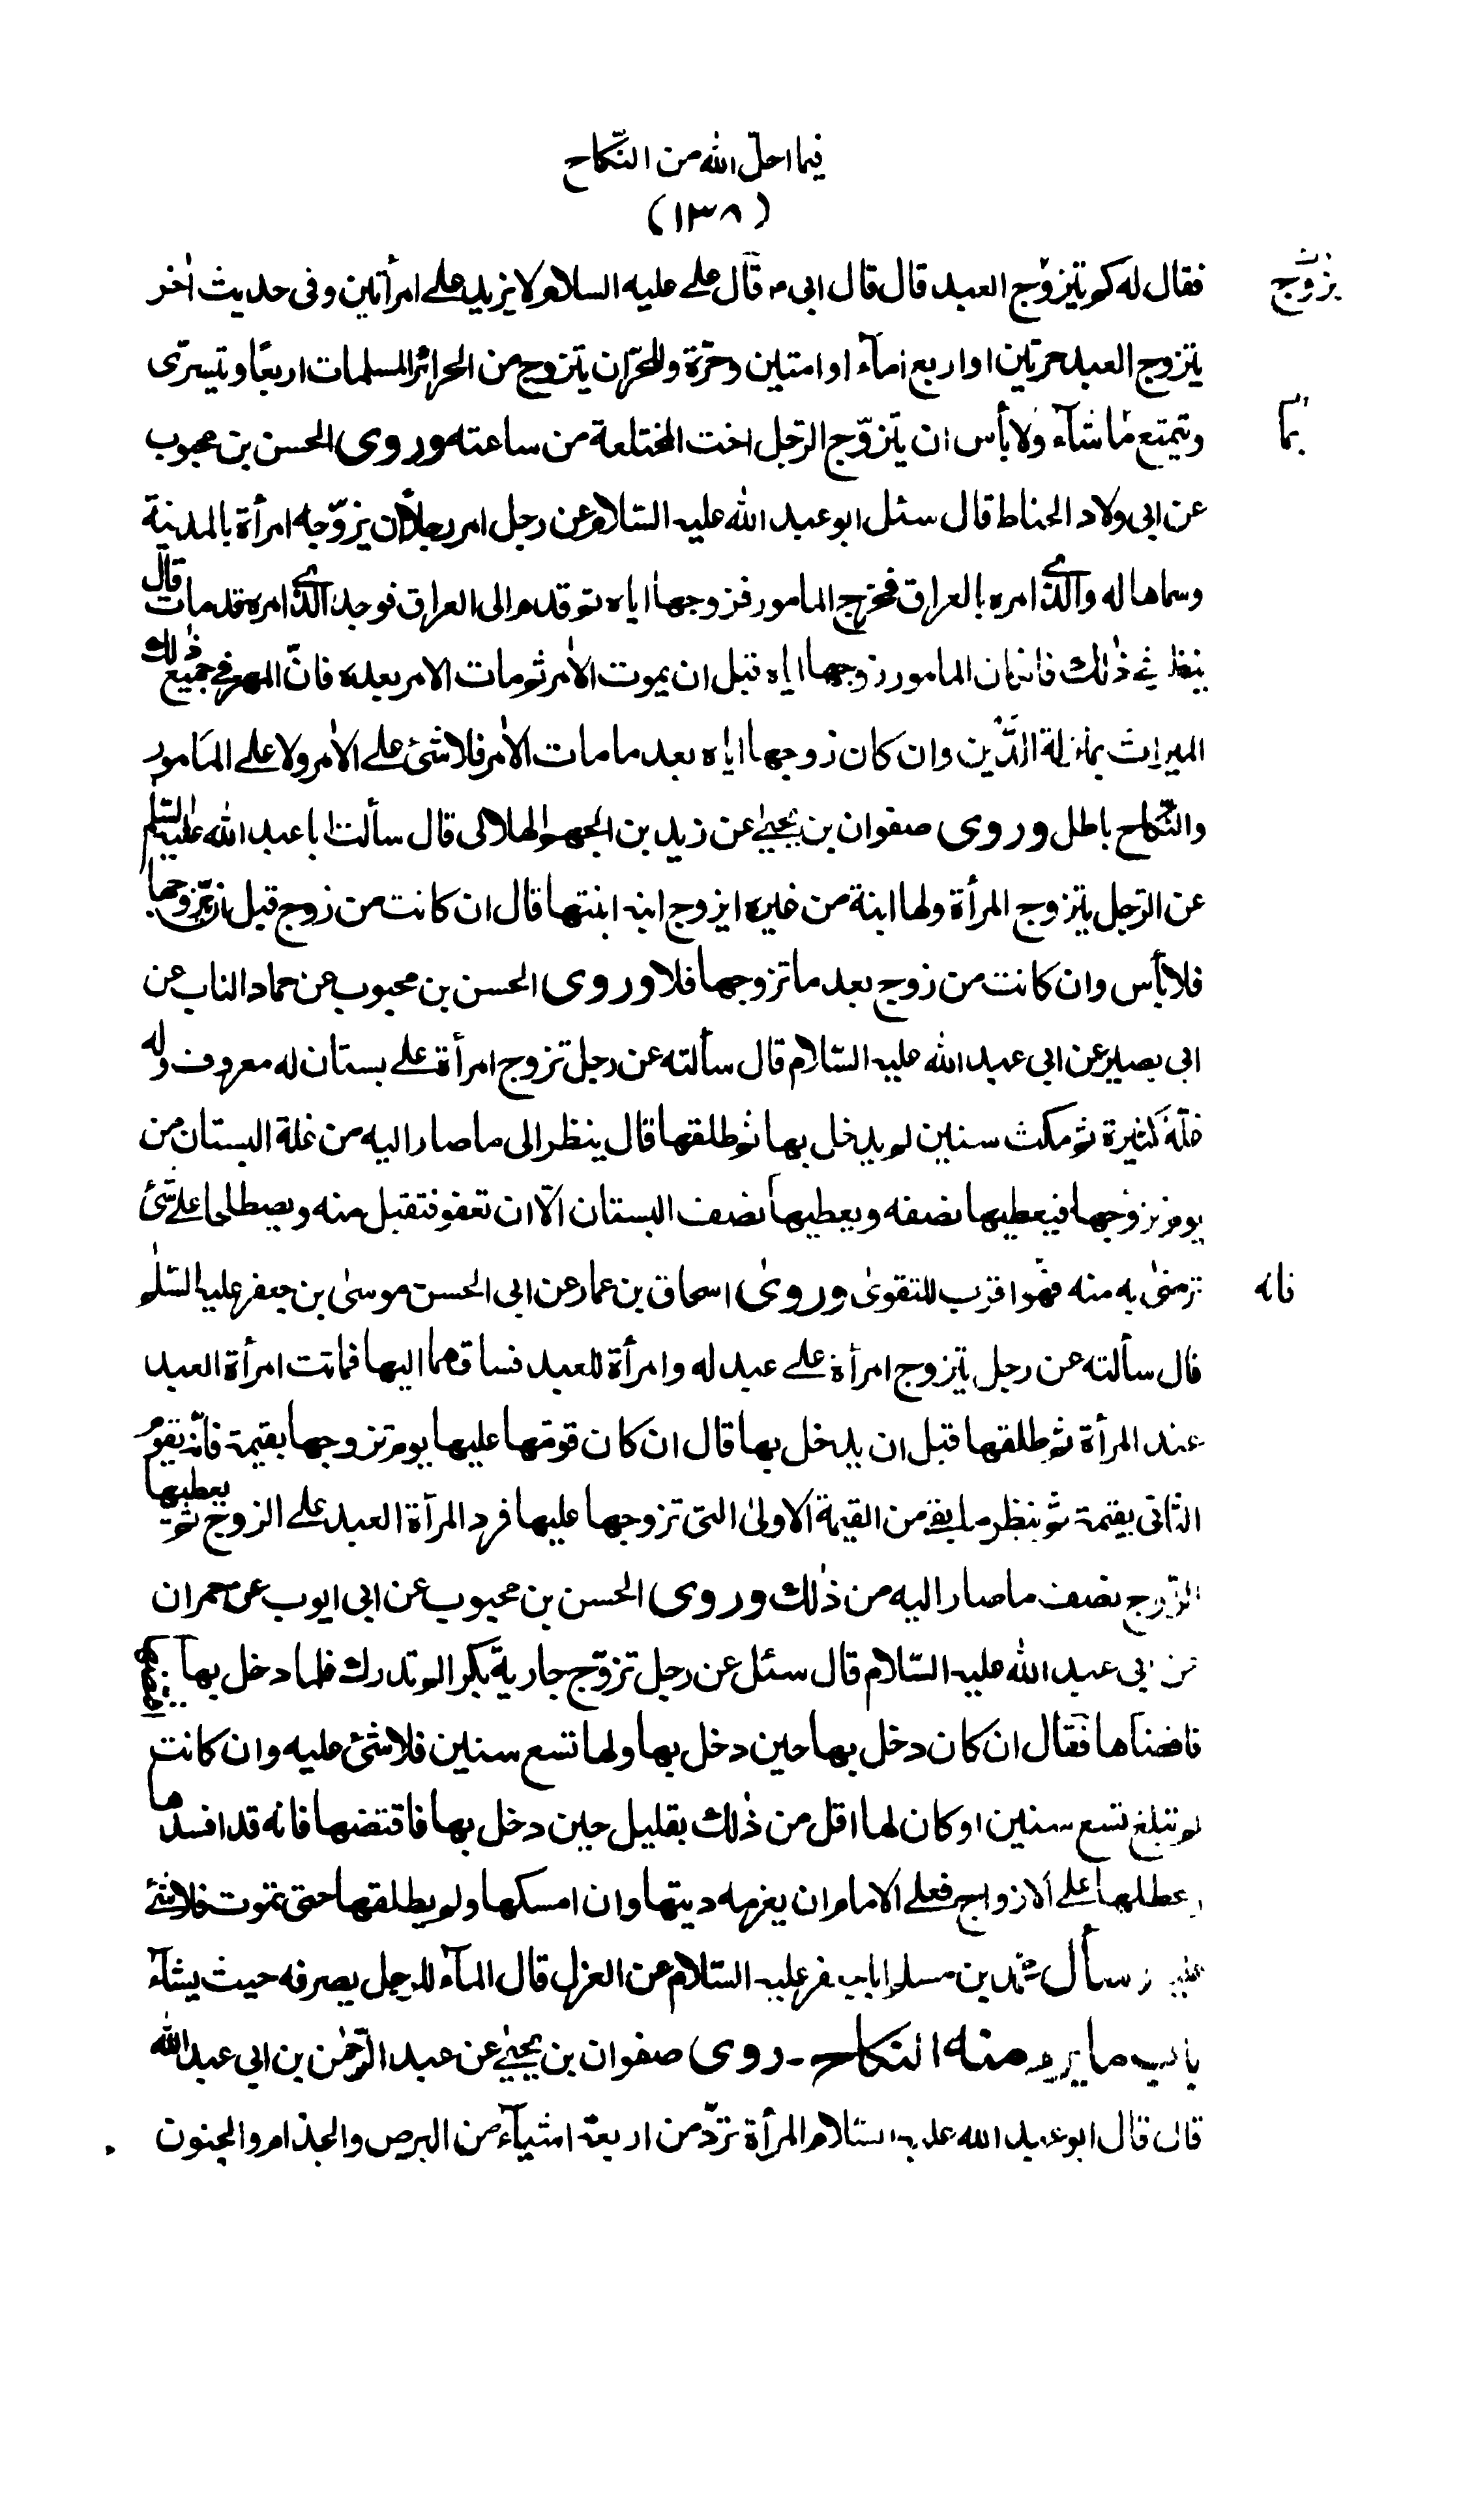 فيما احلّ الله من النّكاح
(١٣٨)
فقال له كم يتزوّج العبد قال قال ابى م قال على عليه السلام لا يزيد على امرأتين وفى حديث اٰخر
يزوّج
يتزوج العبد حرتين او اربع اماۤء او امتين وحرّة وللحرّ ان يتزوج من الحرائر المسلمات اربعًا ويتسرّى
ويتمتع ما شاۤء ولا بأس ان يتزوّج الرّجل اخت المختلعة من ساعته وروى الحسن بن محبوب
بما
عن ابى ولاد الحناط قال سئل ابو عبد الله عليه السّلام عن رجل امر رجلاً ان يزوّجه امرأة بالمدينة
وسماها له والّذى امره بالعراق فخرج المامور فزوجها اياه ثم قدم الى العراق فوجد الّذى امره قد مات قال
ينظر فى ذٰلك فان كان المامور زوجها اياه قبل ان يموت الاٰمر ثم مات الامر بعده فانّ المهر فى جميع ذٰلك
الميراث بمنزلة الدَّين وان كان زوجها اياه بعد ما مات الاٰمر فلا شئ على الاٰمر ولا على المامور
والنّكاح باطل وروى صفوان بن يحيىٰ عن زيد بن الجهم الهلالى قال سألت ابا عبد الله عليه السّلم
عن الرّجل يتزوج المرأة ولها ابنة من غيره ايزوج ابنه ابنتها قال ان كانت من زوج قبل ان يتزوجها
فلا بأس وان كانت من زوج بعد ما تزوجها فلا وروى الحسن بن محبوب عن حماد الناب عن
ابى بصير عن ابى عبد الله عليه السّلام قال سألته عن رجل تزوج امرأة على بستان له معروف وله
غلّة كثيرة ثم مكث سنين لم يدخل بها ثم طلقها قال ينظر الى ما صار اليه من غلة البستان من
يوم تزوجها فيعطيها نصفه ويعطيها نصف البستان الّا ان تعفو فتقبل منه ويصطلحا على شئ
ترضىٰ به منه فهو اقرب للتقوىٰ وروىٰ اسحاق بن عمار عن ابى الحسن موسىٰ بن جعفر عليه السّلٰم
فانه
قال سألته عن رجل يتزوج امرأة على عبد له وامرأة للعبد فساقهما اليها فماتت امرأة العبد
عند المرأة ثم طلقها قبل ان يدخل بها قال ان كان قومها عليها يوم تزوجها بقيمة فانّه يقوم
الثانى بقيمة ثم ينظر ما بقى من القيمة الاولىٰ التى تزوجها عليها فرد المرأة العبد على الزوج ثم يعطيها
الزّوج نصف ما صار اليه من ذٰلك وروى الحسن بن محبوب عن ابى ايوب عن حمران
عن ابى عبد الله عليه السّلام قال سئل عن رجل تزوّج جارية بكرا لم تدرك فلما دخل بها
فافضاها فقال ان كان دخل بها حين دخل بها ولها تسع سنين فلا شئ عليه وان كانت
لم تبلغ تسع سنين او كان لها اقل من ذٰلك بقليل حين دخل بها فاقتضها فانه قد افسدها
وعطلها على الازواج فعلى الامام ان يغرمه ديتها وان امسكها ولم يطلقها حتى تموت فلا شئ
عليه وسأل محمد بن مسلم ابا جعفر عليه السّلام عن العزل قال الماۤء للرجل يصرفه حيث يشاۤء
باب ما يرد منه النكاح ـ روى صفوان بن يحيىٰ عن عبد الرّحمٰن بن ابى عبد الله
قال قال ابو عبد الله عليه السّلام المرأة تردّ من اربعة اشياۤء من البرص والجذام والجنون